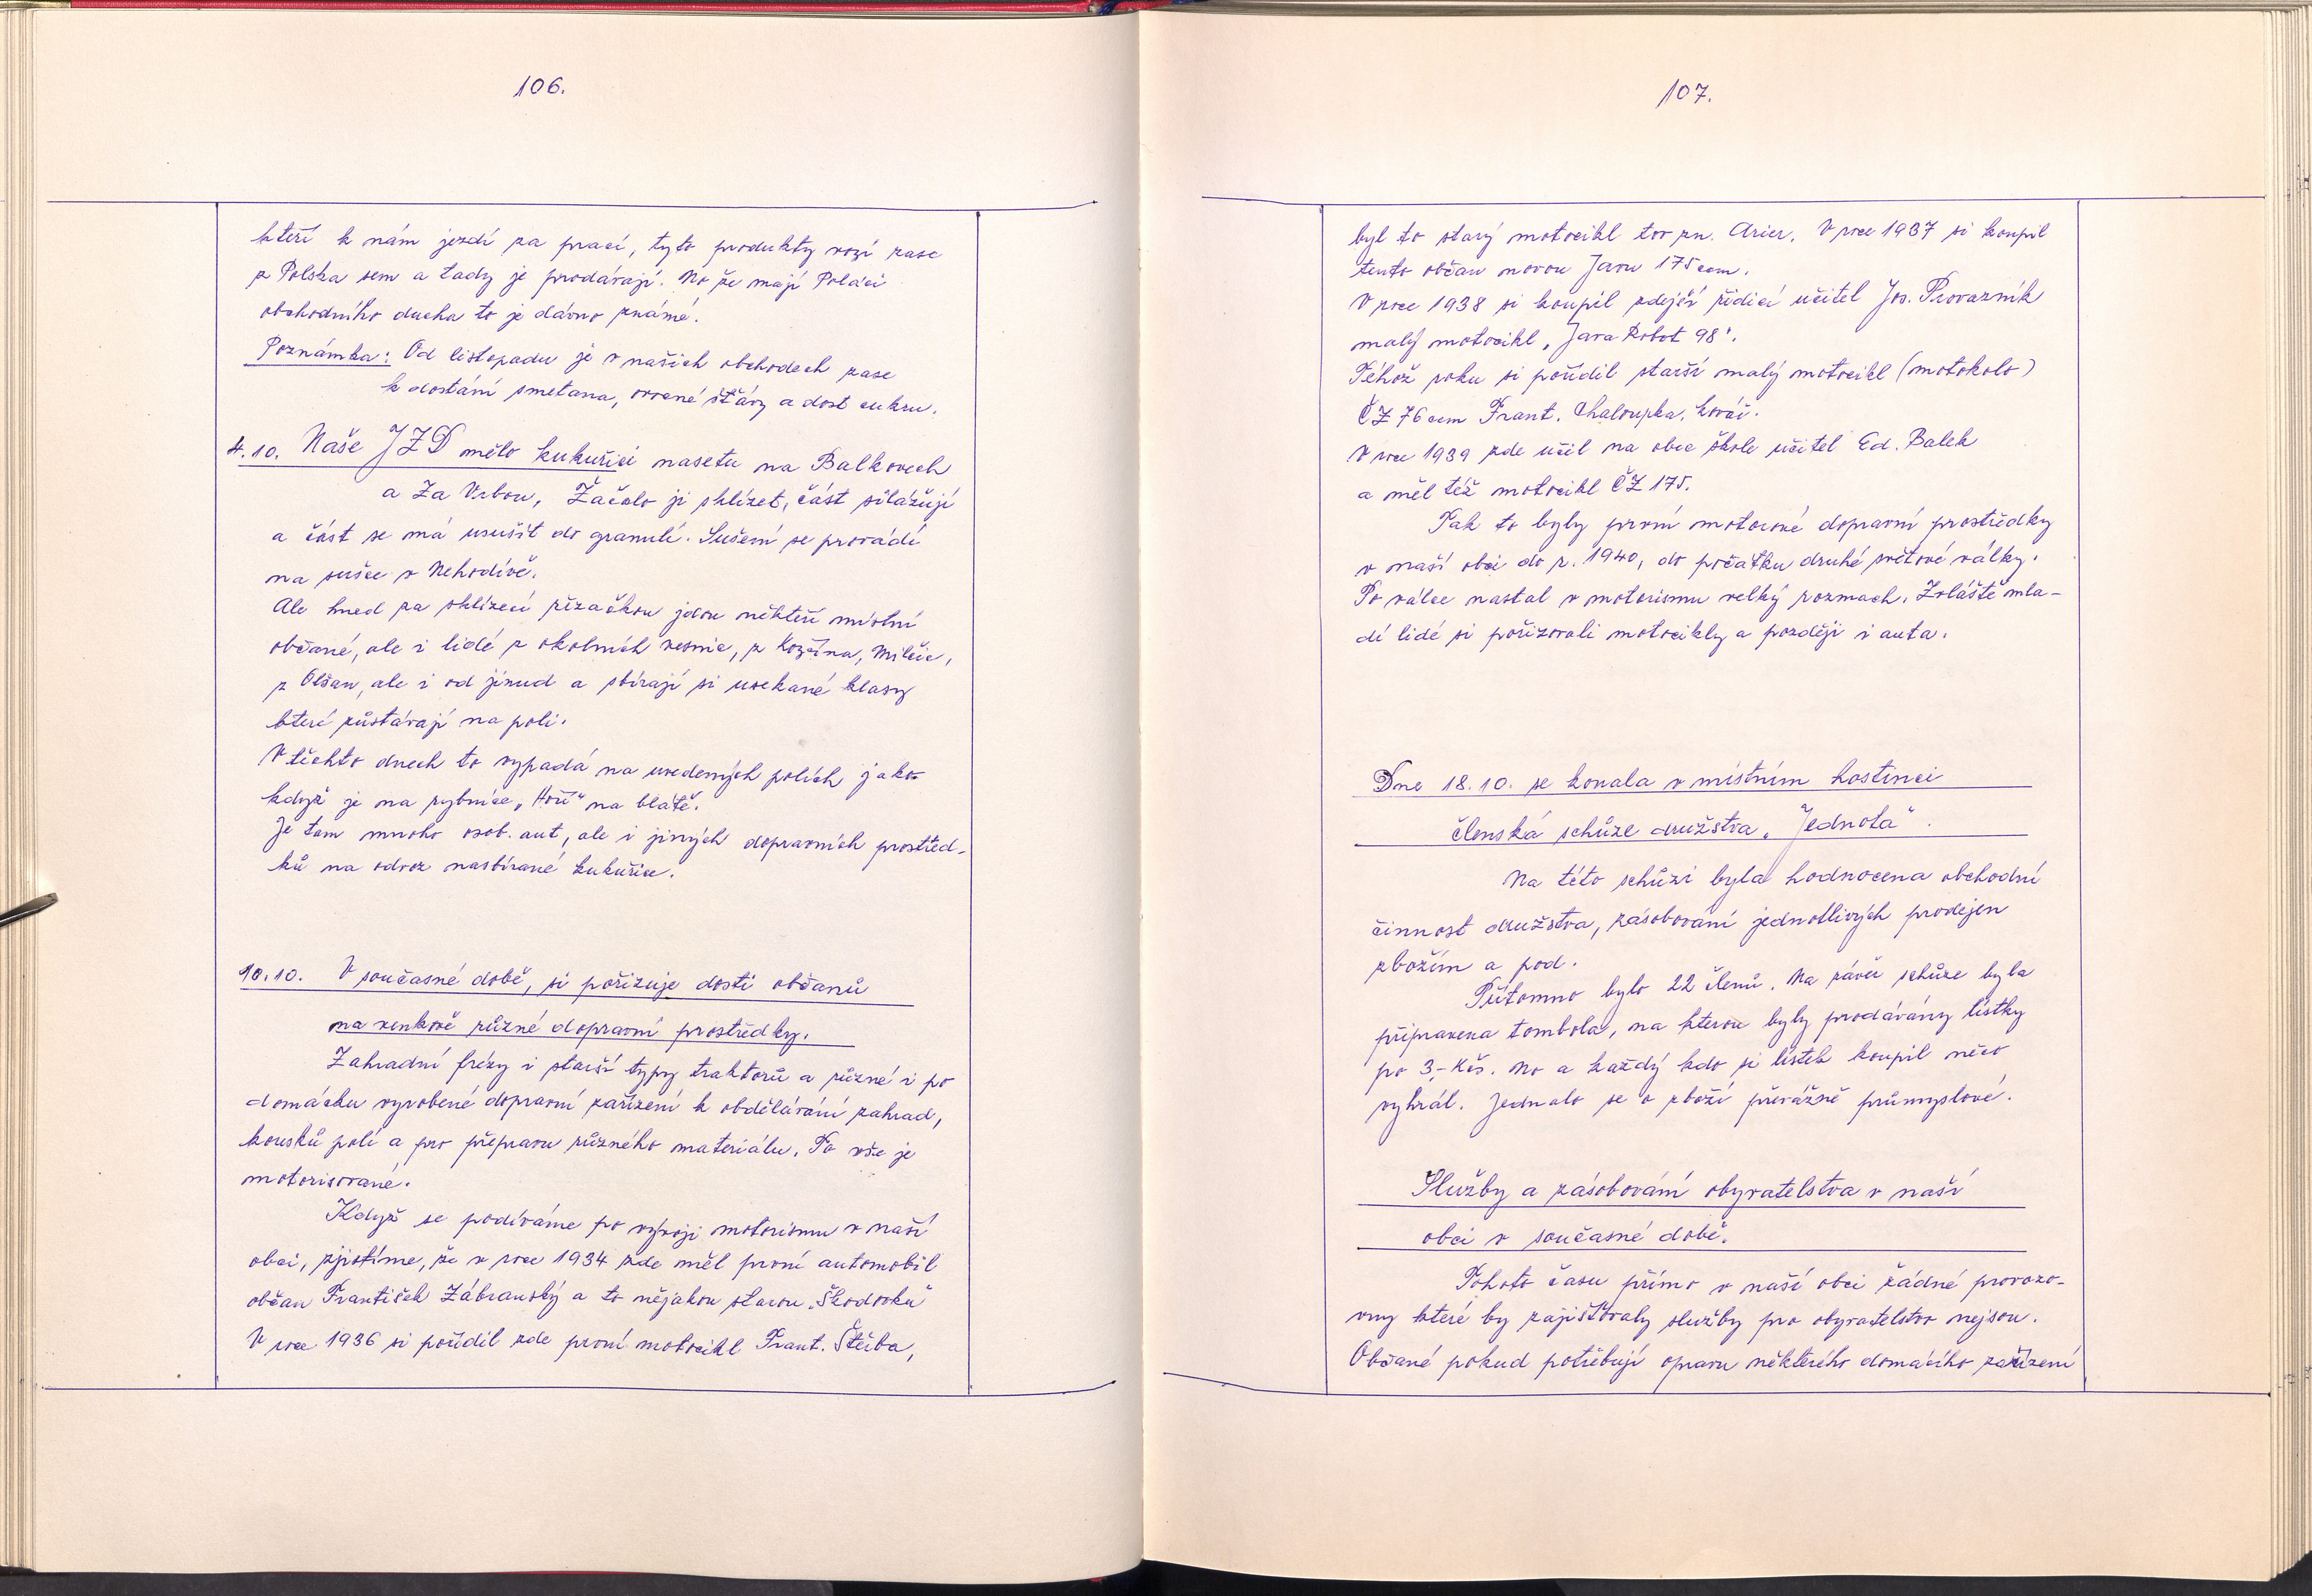 106.
kteří k nám jezdí za prací, tyto produkty vozí zase
z Polska sem a tady je prodávají. No že mají Poláci
obchodního ducha to je dávno známé.
Poznámka: Od listopadu je v našich obchodech zase
k dostání smetana, ovocné šťávy a dost cukru.
4.10. Naše JZD mělo kukuřici nasetu na Balkovech
a Za Vrbou, Začalo ji sklízet, část silážují
a část se má usušit do granulí. Sušení se provádí
na sušce v Nehodívě.
Ale hned za sklízecí řezačkou jdou někteří místní
občané, ale i lidé z okolních vesnic, z Kozčína, Milčic,
z Olšan, ale i od jinud a sbírají si usekané klasy
které zůstávají na poli.
V těchto dnech to vypadá na uvedených polích jako-
když je na rybníce „Hoří" na blatě.
Je tam mnoho osob. aut, ale i jiných dopravních prostřed-
ků na odvoz nasbírané kukuřice.
10.10. V současné době, si pořizuje dosti občanů
na venkově různé dopravní prostředky.
Zahradní frézy i starší typy traktorů a různé i po
domácku vyrobené dopravní zařízení k obdělávání zahrad,
kousků polí a pro přepravu různého materiálu. To vše je
motorisované.
Když se podíváme po vývoji motorismu v naší
obci, zjistíme, že v roce 1934 zde měl první automobil
občan František Zábranský a to nějakou starou „Škodovku"
V roce 1936 si pořídil zde první motocikl Frant. Štěrba,
107.
byl to starý motocikl tov zn. Arier. V roce 1937 si koupil
tento občan novou Javu 175 ccm.
V roce 1938 si koupil zdejší řídící učitel Jos. Provazník
malý motocikl „Java Robot 98".
Téhož roku si pořídil starší malý motocikl (motokolo)
ČZ 76 ccm Frant. Chaloupka, kovář.
V roce 1939 zde učil na obec škole učitel Ed. Balek
a měl též motocikl ČZ 175.
Tak to byly první motorové dopravní prostředky
v naší obci do r. 1940, do počátku druhé světové války.
Po válce nastal v motorismu velký rozmach. Zvláště mla-
dí lidé si pořizovali motocikly a později i auta.
Dne 18.10. se konala v místním hostinci
členská schůze družstva „Jednota".
Na této schůzi byla hodnocena obchodní
činnost družstva, zásobování jednotlivých prodejen
zbožím a pod.
Přítomno bylo 22 členů. Na závěr schůze byla
připravena tombola, na kterou byly prodávány lístky
po 3,- Kčs. No a každý kdo si lístek koupil něco
vyhrál. Jednalo se o zboží převážně průmyslové.
Služby a zásobování obyvatelstva v naší
obci v současné době.
Tohoto času přímo v naší obci žádné provozo-
vny které by zajišťovaly služby pro obyvatelstvo nejsou.
Občané pokud potřebují opravu některého domácího zařízení